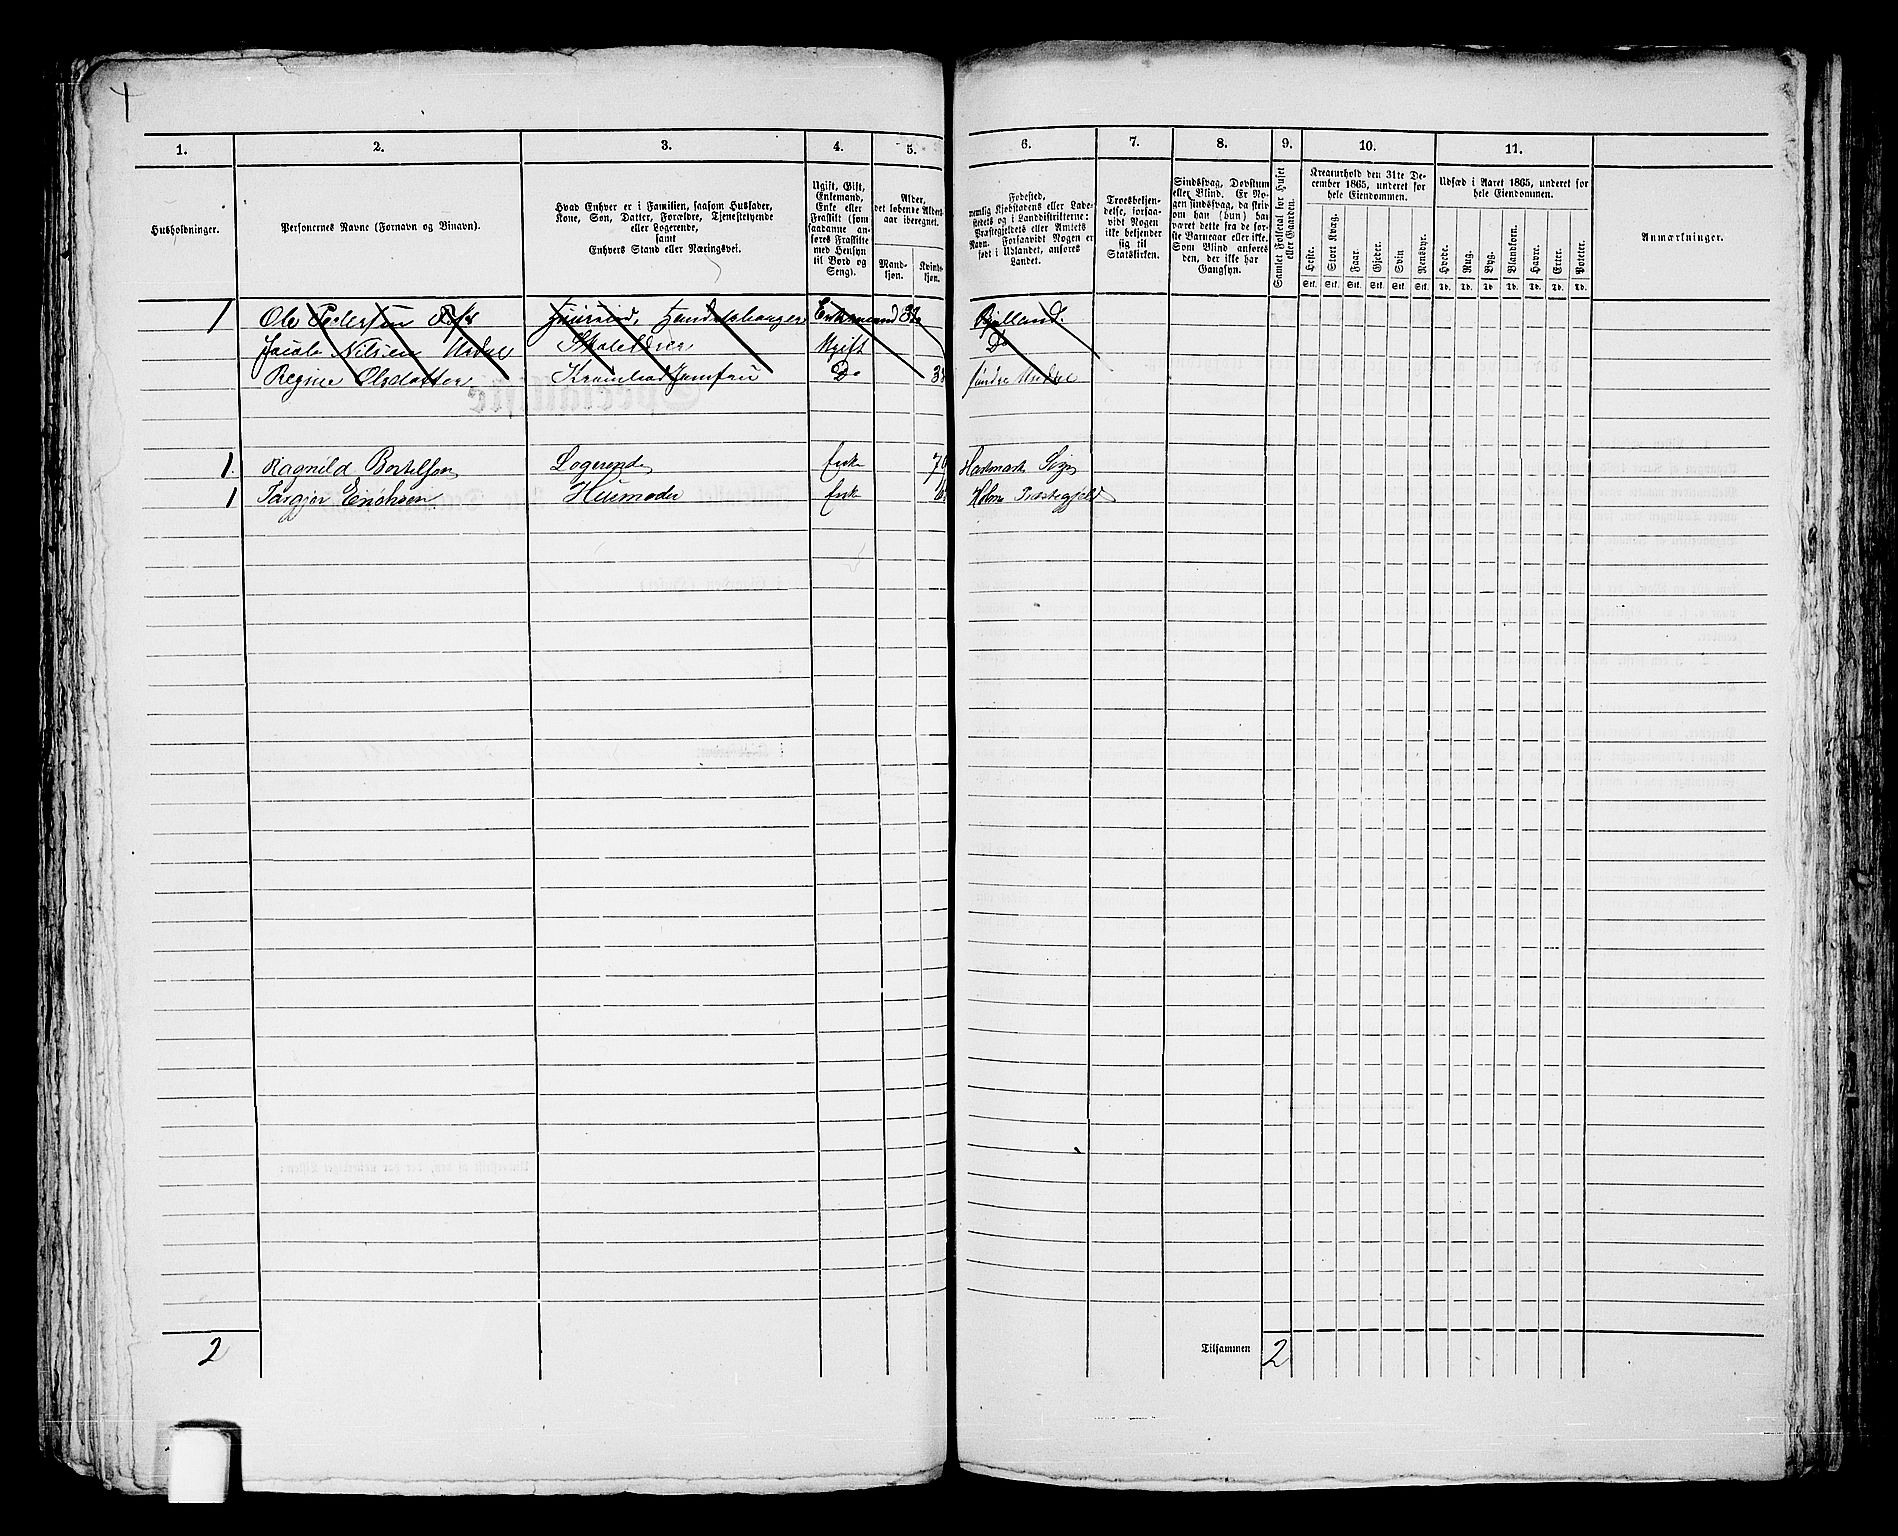 1. 2. 3. 4. 5.
Husholdninger.
Personernes Navne (Fornavn og Binavn).
Hvad Enhver er i Familien, saasom Husfader,
Kone, Søn, Datter, Forældre, Tjenestetyende
eller Logerende,
samt
Enhvers Stand eller Næringsvei.
Ugift, Gift,
Enkemand,
Enke eller
Fraskilt (som
saadanne an-
føres Fraskilte
med Hensyn
til Bord og
Seng).
Alder,
det løbende Alders-
aar iberegnet.
Mand-
kjøn.
Kvinde-
kjøn.
1 Ole Pedersen Handelsborger Enkemand
Jacob Nilsen Ugift
Regine Olsdatter Do
1. Ragnild Bertelsen Logerende Enke
1 Enke
2
6. 7. 8. 9. 10. 11.
Fødested,
nemlig Kjøbstadens eller Lade-
stedets og i Landdistrikterne:
Præstegjeldets eller Amtets
Navn. Forsaavidt Nogen er
født i Udlandet, anføres
Landet.
Troesbekjen-
delse, forsaa-
vidt Nogen
ikke bekjender
sig til
Statskirken.
Sindssvag, Døvstum
eller Blind. Er No-
gen sindssvag, da skriv
om han (hun) har
været dette fra de før-
ste Barneaar eller ikke.
Som Blind anføres
den, der ikke har
Gangsyn.
Samlet Folketal for Huset
eller Gaarden.
Kreaturhold den 31te De-
cember 1865, underet for
hele Eiendommen.
Heste. Stort Kvæg. Faar. Gjeder. Svin Rensdyr.
Stk. Stk. Stk. Stk. Stk. Stk.
Udsæd i Aaret 1865, underet for
hele Eiendommen.
Hvede. Rug. Byg. Blandkorn. Havre. Erter. Poteter.
Td. Td. Td. Td. Td. Td. Td.
Anmærkninger.
Do
Holme Præstegjeld
Tilsammen 2